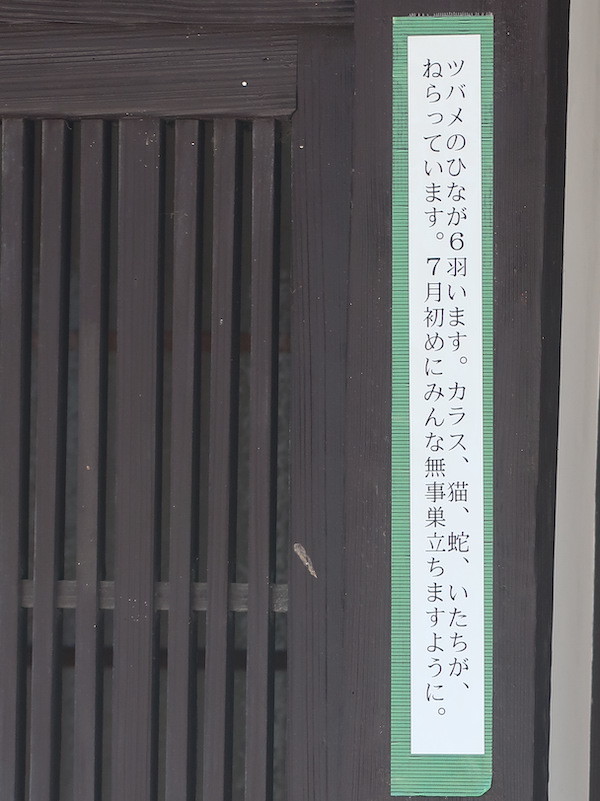 ツバメのひなが6羽います。カラス、猫、蛇、いたちが、
ねらっています。7月初めにみんな無事巣立ちますように。